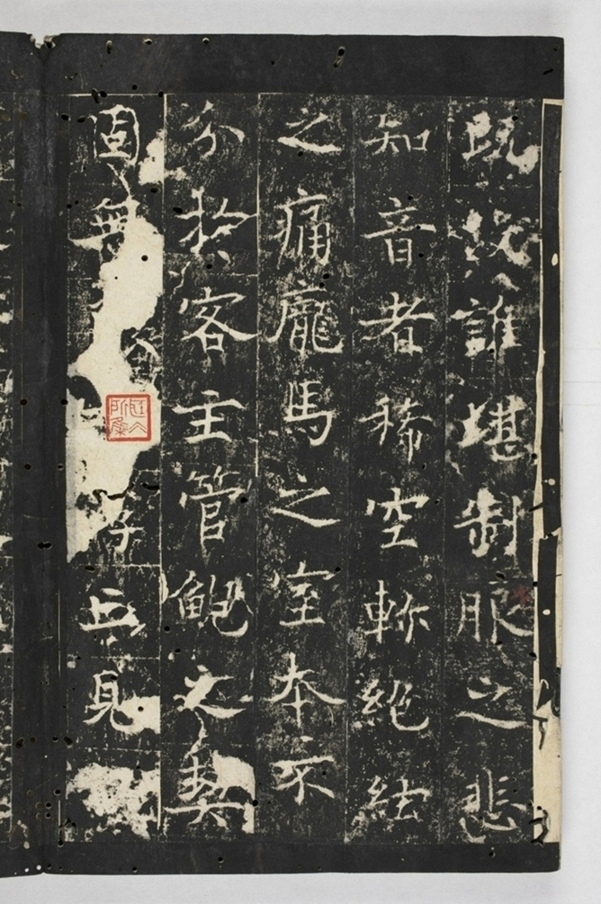 既没誰堪制服之悲
知音者稀空軫絕絃
之痛龐馬之室本不
分於客主管鮑之契
固無
弘見